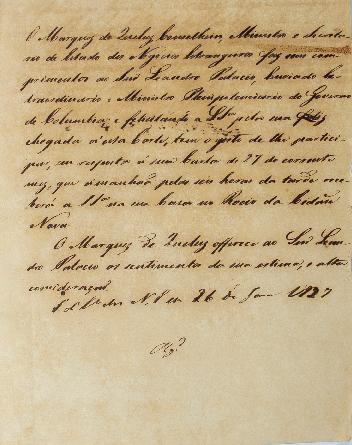 O Marquez de Queluz Conselheiro, Ministro e Secreta-
rio de Estado dos Negocios Estrangeiros faz seus com-
primentos ao Snr. Leandro Palacio, Enviado Ex-
traordinario e Ministro Plenipotenciario do Governo
de Columbia; e felicitando a S.Sria pela sua feliz
chegada a esta Corte, tem o gosto de lhe partici-
par, em resposta á sua Carta de 27 do corrente
mez, que ámanhãa pelas seis horas da tarde rece-
berá a S.Sria na sua Casa no Rocio da Cidade
Nova.
O Marquez de Queluz offerece ao Snr. Lean-
dro Palacio os sentimentos da sua estima, e alta
consideração.
S. d'Es. dos N. E. em 26 de Janro 1827